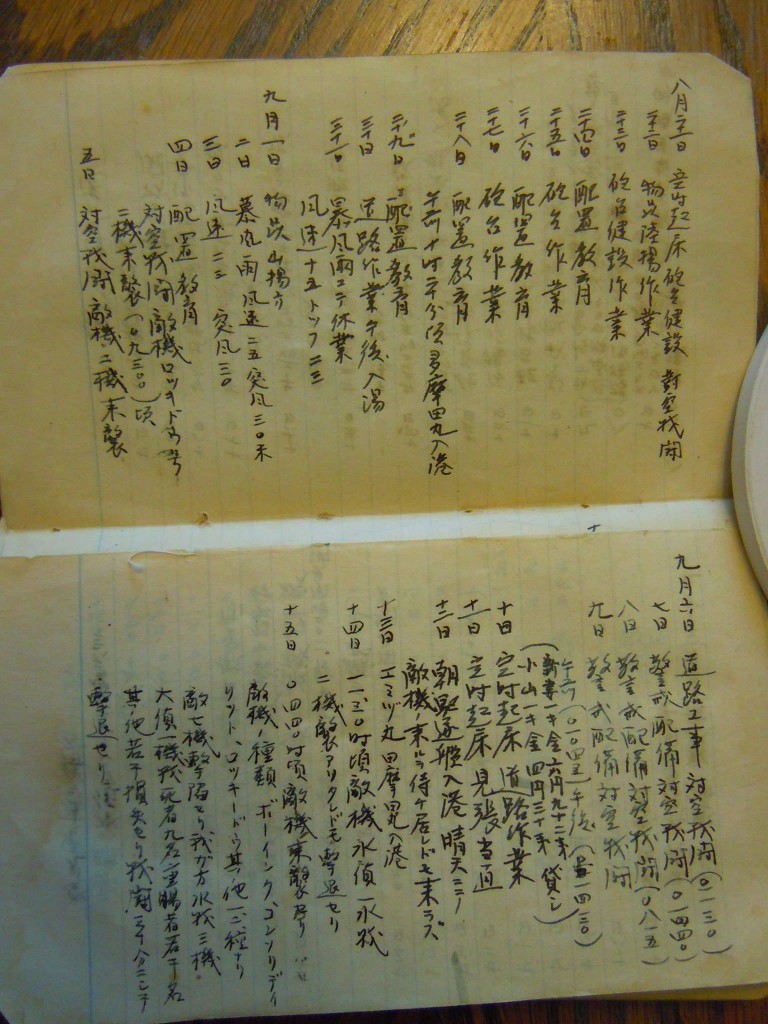 八月二十一日 定時起床砲台建設 対空戦闘
二十二日 物資陸揚作業
二十三日 砲台建設作業
二十四日 配置教育
二十五日 砲台作業
二十六日 配置教育
二十七日 砲台作業
二十八日 配置教育
午前十時二十分頃多摩田丸入港
二十九日 配置教育
三十日 道路作業午後入湯
三十一日 暴風雨ニテ休業
風速十五トツフ二三
九月一日 物資山揚方
二日 暴風雨風速二五突風三〇米
三日 風速二三 突風三〇
四日 配置教育
対空戦闘敵機ロッキド
二機来襲(〇九三〇)頃
五日 対空戦闘 敵機二機来襲
九月六日 道路工事 対空戦闘(〇一三〇)
七日 警戒配備対空戦闘(〇一四〇)
八日 警戒配備対空戦闘(〇八一五)
九日 警戒配備対空戦闘
午前(〇一〇四五)午後(一四三〇)
新妻一キ金六円九十二銭貸シ
(小山一キ金四円三十銭)
十日 定時起床 道路作業
十一日 定時起床見張当直
十二日 朝輸送船入港 晴天ニシテ
敵機ノ来ルヲ待ケ居レドモ来ラズ
十三日 エミツ丸 田摩田丸入港
十四日 一一三〇時頃敵機水偵一水戦
二機襲アリタレドモ撃退セリ
十五日 〇四四〇時頃敵機来襲アリ
敵機ノ種類ボーイング、コンソリデイ
リツト、ロッキード其ノ他一二種ナリ
敵七機撃墜セリ我ガ方水戦三機
大偵一機戦死者九名重腸者若干名
其ノ他若干損失セリ戦闘三十分ニシテ
撃退セリ